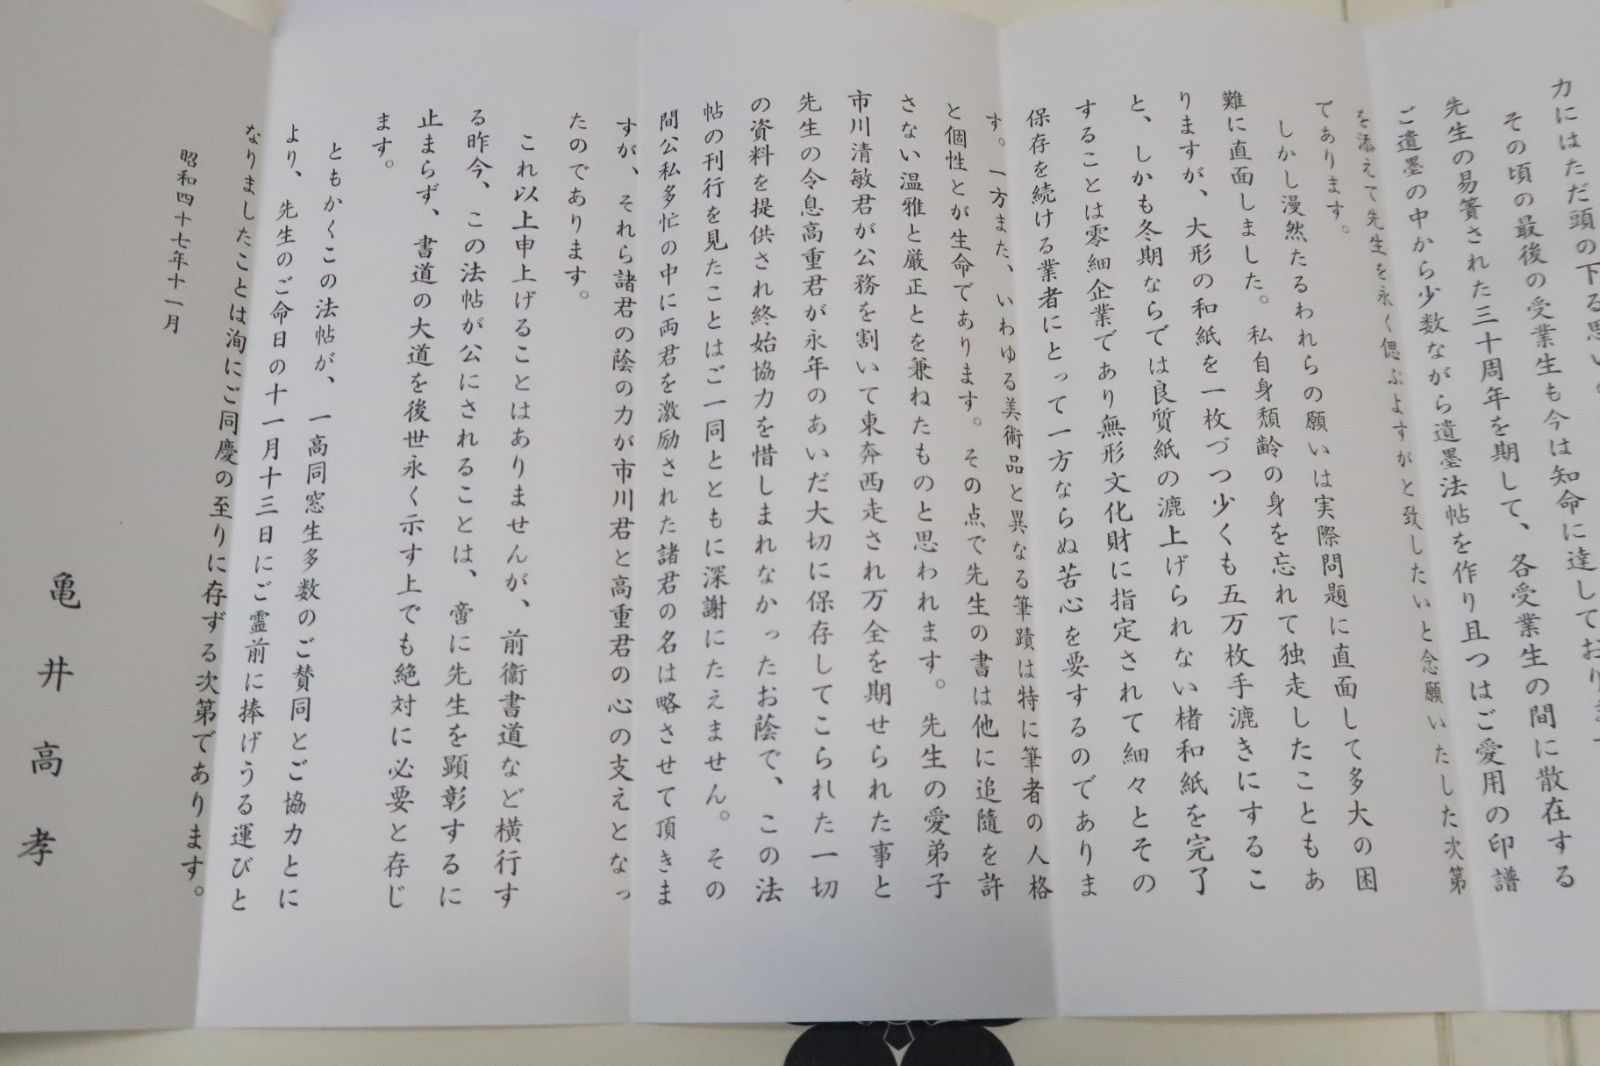 力にはただ頭の下る思い
その頃の最後の受業生も今は知命に達しており
先生の易簀された三十周年を期して、各受業生の間に散在する
ご遺墨の中から少数ながら遺墨法帖を作り且つはご愛用の印譜
を添えて先生を永く偲ぶよすがと致したいと念願いたした次第
であります。
しかし漫然たるわれらの願いは実際問題に直面して多大の困
難に直面しました。私自身頽齢の身を忘れて独走したこともあ
りますが、大形の和紙を一枚づつ少くも五万枚手漉きにするこ
と、しかも冬期ならでは良質紙の漉上げられない楮和紙を完了
することは零細企業であり無形文化財に指定されて細々とその
保存を続ける業者にとって一方ならぬ苦心を要するのでありま
す。一方また、いわゆる美術品と異なる筆蹟は特に筆者の人格
と個性とが生命であります。その点で先生の書は他に追随を許
さない温雅と厳正とを兼ねたものと思われます。先生の愛弟子
市川清敏君が公務を割いて東奔西走され万全を期せられた事と
先生の令息高重君が永年のあいだ大切に保存してこられた一切
の資料を提供され終始協力を惜しまれなかったお蔭で、この法
帖の刊行を見たことはご一同とともに深謝にたえません。その
間公私多忙の中に両君を激励された諸君の名は略させて頂きま
すが、それら諸君の蔭の力が市川君と高重君の心の支えとなっ
たのであります。
これ以上申上げることはありませんが、前衛書道など横行す
る昨今、この法帖が公にされることは、啻に先生を顕彰するに
止まらず、書道の大道を後世永く示す上でも絶対に必要と存じ
ます。
ともかくこの法帖が、一高同窓生多数のご賛同とご協力とに
より、先生のご命日の十一月十三日にご霊前に捧げうる運びと
なりましたことは洵にご同慶の至りに存ずる次第であります。
昭和四十七年十一月
亀井高孝